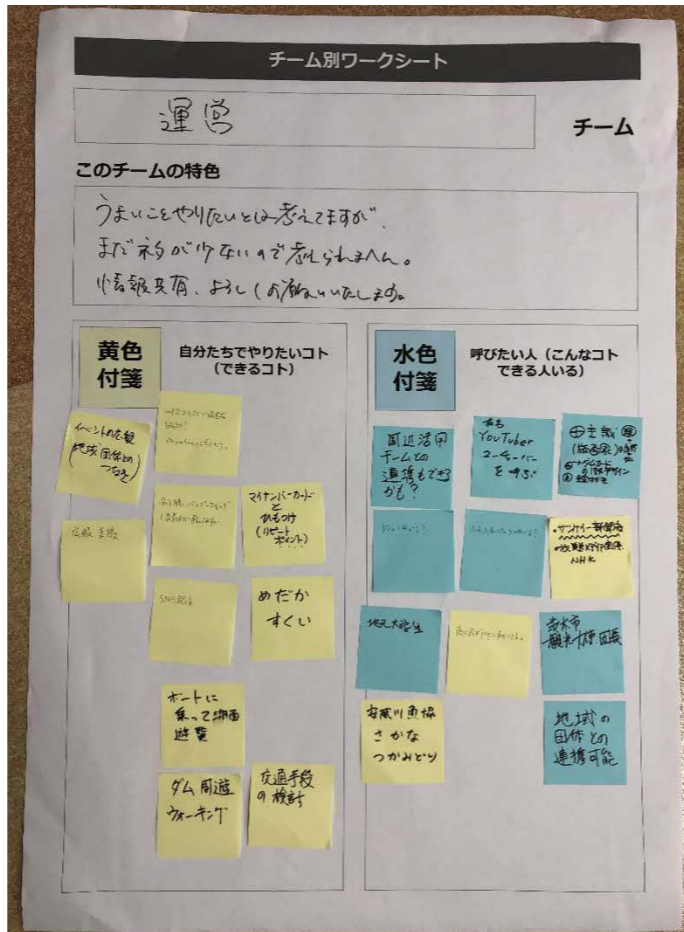 チーム別ワークシート
運営
チーム
このチームの特色
うまいことやりたいとは考えてますが、
まだネタが少ないので考えられまへん。
情報共有、よろしくお願いいたします。
黄色
付箋
自分たちでやりたいコト
(できるコト)
イベントの広報
(地域団体との
つなぎ)
マイナンバーカード
と
ひもつけ
(リピート
ポイント)
広報 支援
SNS
めだか
すくい
ボートに
乗って湖面
遊覧
ダム周遊
ウォーキング
交通手段
の検討
水色
付箋
呼びたい人(こんなコト
できる人いる)
周辺活用
チームとの
連携もできる
かも?
有名
YouTuber
ユーチューバー
を呼ぶ
(版画家)
・サンケイ新聞
・放送メディア関係
NHK
地元大学生
茨木市
観光大使 団長
安威川漁協
さかな
つかみどり
地域の
団体との
連携可能